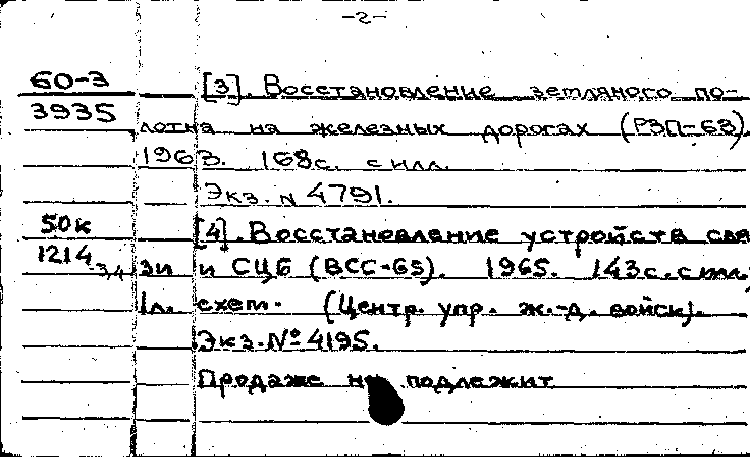 -2-
60-3 [3]. Восстановление земляного по-
3935 лотна на железных дорогах (РЗП-63).
1963. 168с. с илл.
Экз. N 4791.
50к [4]. Восстановление устройств свя
1214-3,4 зи и СЦБ (ВСС-65). 1965. 143с. с илл,
1л. схем. (Центр. упр. ж.-д. войск).
Экз. № 4195.
Продаже не подлежит